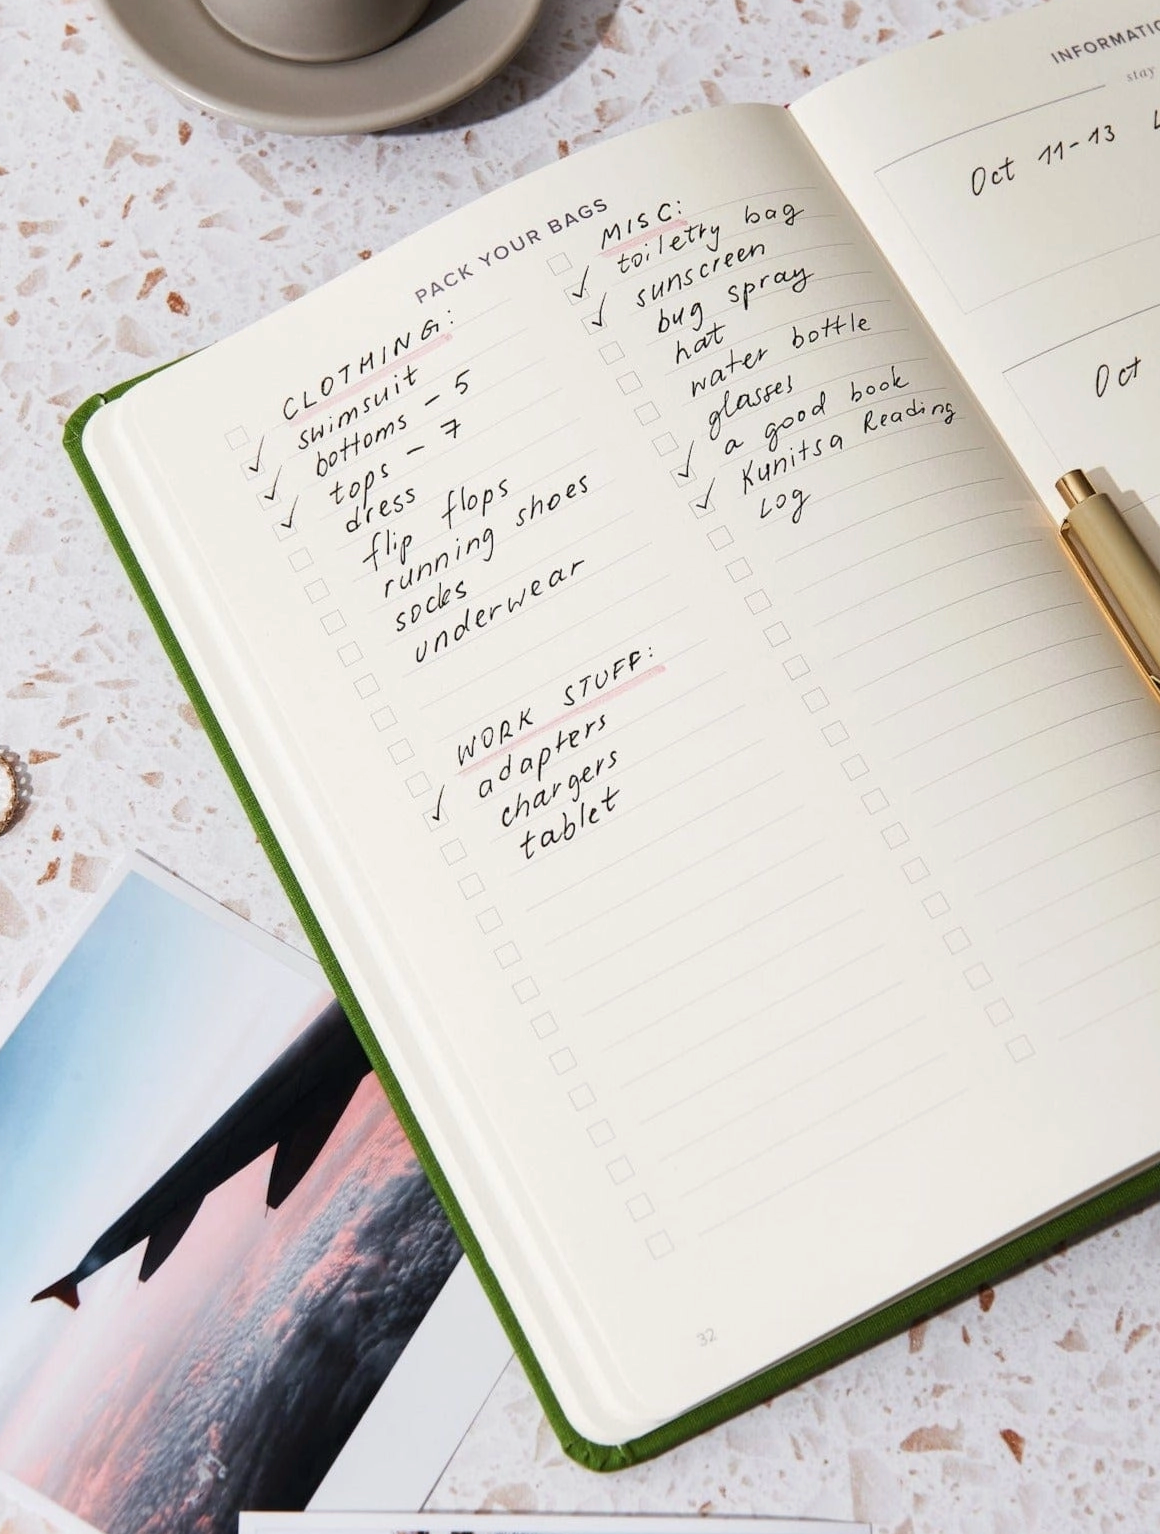 PACK YOUR BAGS
CLOTHING:
swimsuit
bottoms - 5
tops - 7
dress
flip flops
running shoes
socks
underwear
WORK STUFF:
adapters
chargers
tablet
MISC:
toiletry bag
sunscreen
bug spray
hat
water bottle
glasses
a good book
Kunitsa Reading
Log
32
stay
Oct 11-13
Oct